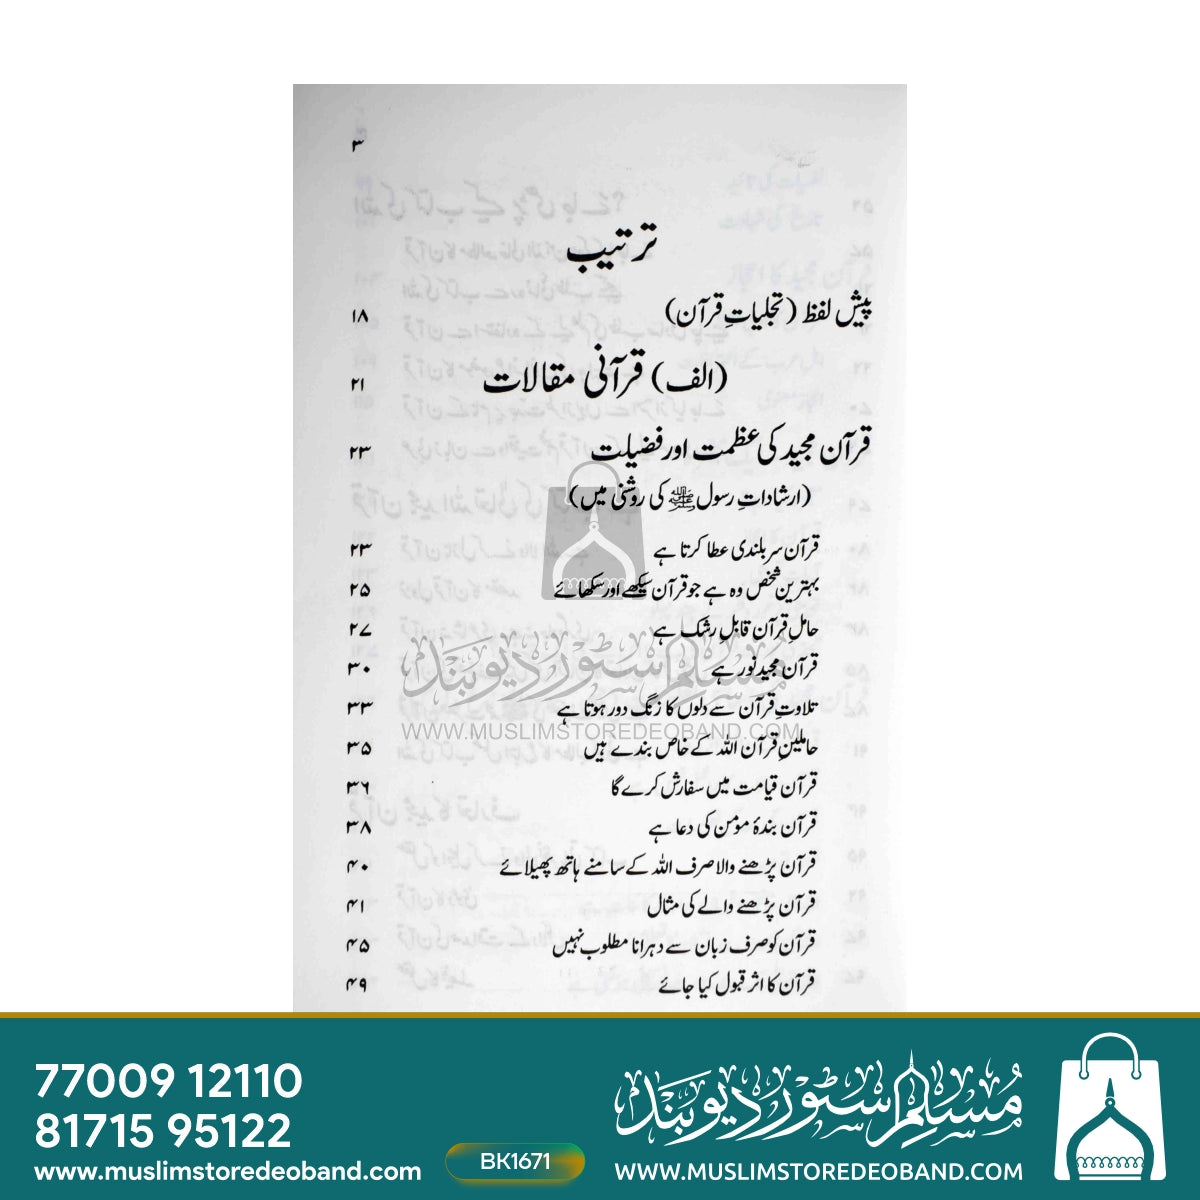 ۳
ترتیب
پیش لفظ (تجلیاتِ قرآن) ۱۸
(الف) قرآنی مقالات ۲۱
قرآن مجید کی عظمت اور فضیلت ۲۳
(ارشاداتِ رسول ﷺ کی روشنی میں)
قرآن سربلندی عطا کرتا ہے ۲۳
بہترین شخص وہ ہے جو قرآن سیکھے اور سکھائے ۲۵
حاملِ قرآن قابلِ رشک ہے ۲۷
قرآن مجید نور ہے ۳۰
تلاوتِ قرآن سے دلوں کا زنگ دور ہوتا ہے ۳۳
حاملینِ قرآن اللہ کے خاص بندے ہیں ۳۵
قرآن قیامت میں سفارش کرے گا ۳۶
قرآن بندۂ مومن کی دعا ہے ۳۸
قرآن پڑھنے والا صرف اللہ کے سامنے ہاتھ پھیلائے ۴۰
قرآن پڑھنے والے کی مثال ۴۱
قرآن کو صرف زبان سے دہرانا مطلوب نہیں ۴۵
قرآن کا اثر قبول کیا جائے ۴۹
مسلم سٹور دیوبند
WWW.MUSLIMSTOREDEOBAND.COM
77009 12110
81715 95122
www.muslimstoredeoband.com
BK1671
مسلم سٹور دیوبند
WWW.MUSLIMSTOREDEOBAND.COM